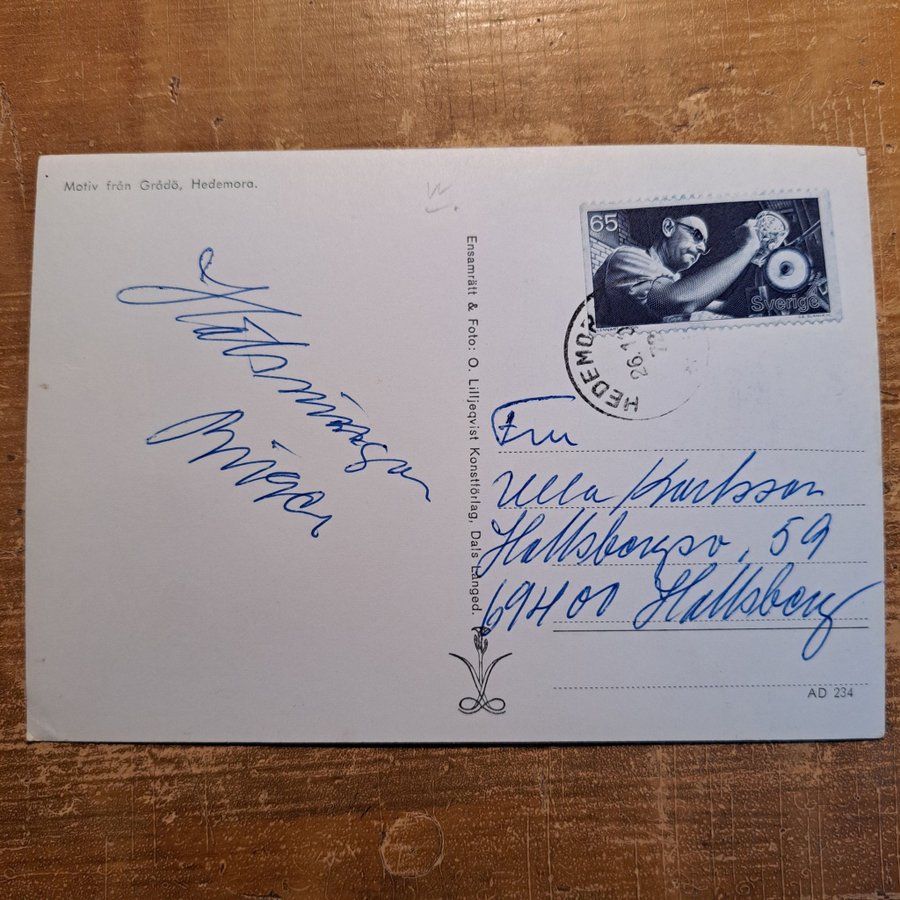 Motiv från Grådö, Hedemora.
Hälsningar
Birger
Ensamrätt & Foto: O. Lilljeqvist Konstförlag, Dals Långed.
65
Sverige
HEDEMORA
Fru
Ulla Karlsson
Hallsbergsv. 59
69400 Hallsberg
AD 234